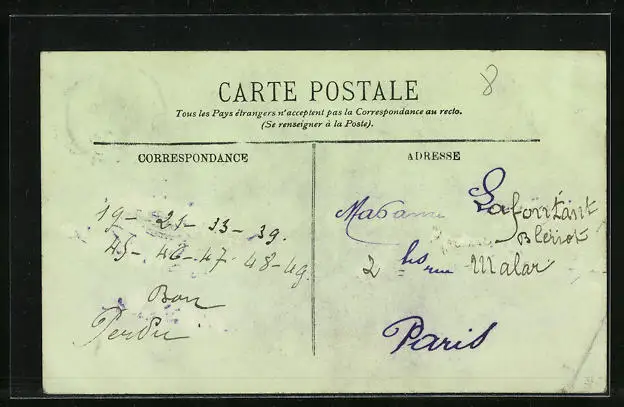 8
CARTE POSTALE
Tous les Pays étrangers n'acceptent pas la Correspondance au recto.
(Se renseigner à la Poste).
CORRESPONDANCE
19 - 21 - 33 - 39.
45 - 46 - 47 - 48 - 49
Bon
Perdu
ADRESSE
Madame Lafontant
Bleriot
2 bis rue Malar
Paris